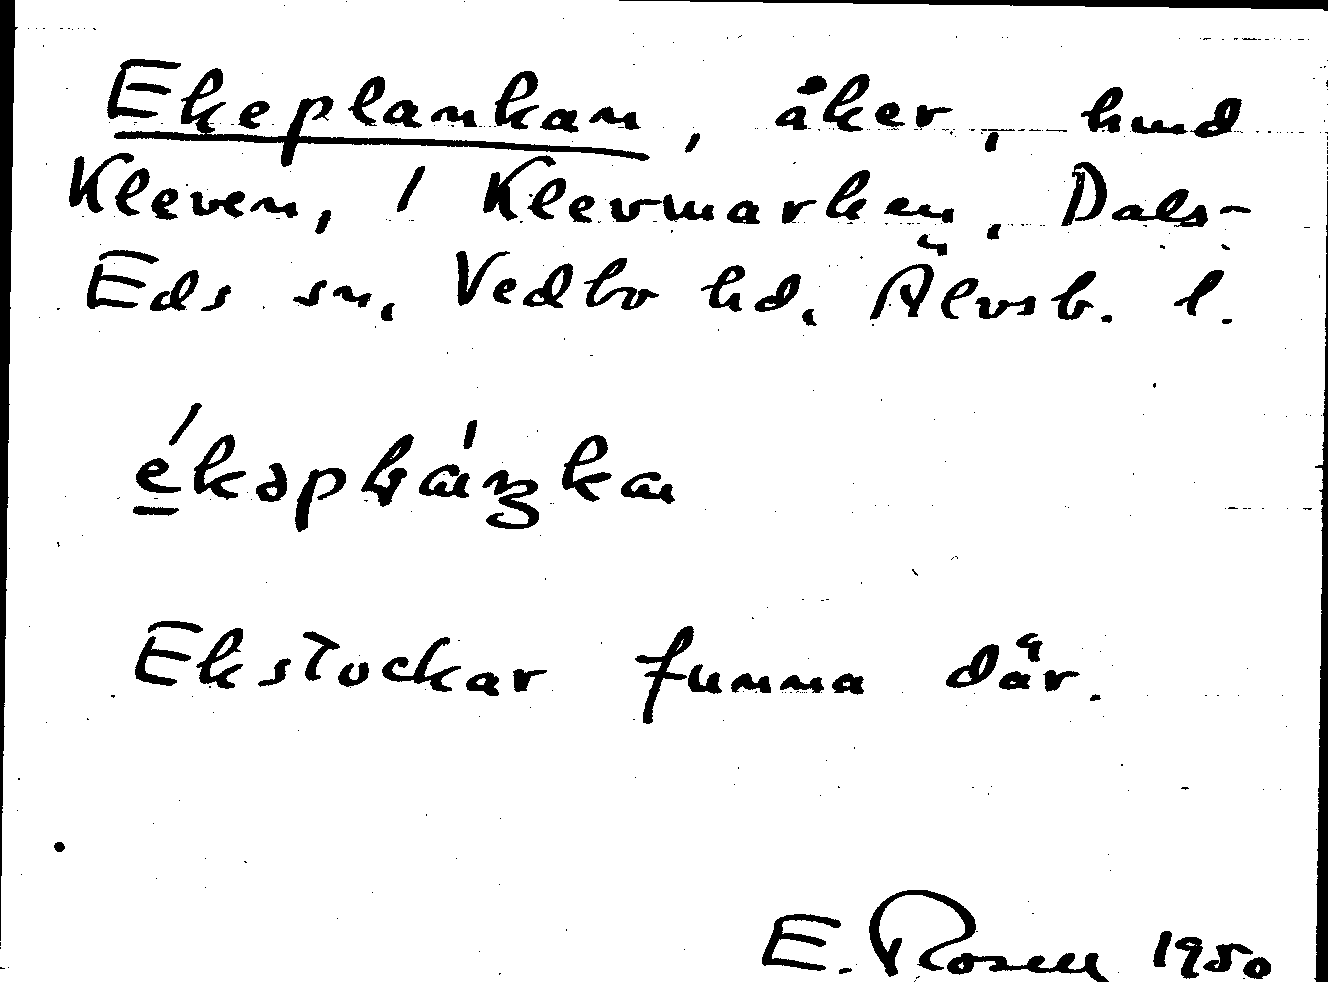 Ekeplankan, åker, hmd
Kleven, 1 Klevmarken, Dals-
Eds sn, Vedbo hd, Älvsb. l.
Ekstockar funna där.
E. Rosell 1950